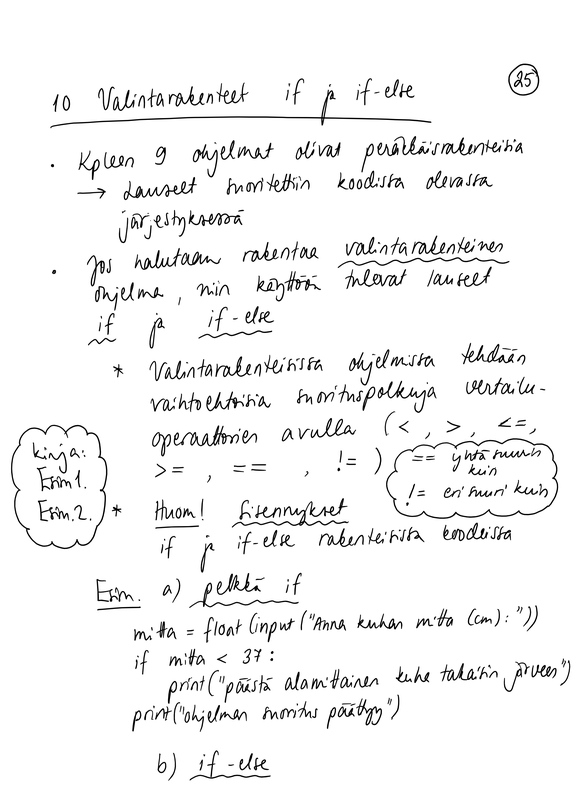 25
10 Valintarakenteet if ja if-else
• Kpleen 9 ohjelmat olivat peräkkäisrakenteisia
→ Lauseet suoritettiin koodissa olevassa
järjestyksessä
• Jos halutaan rakentaa valintarakenteinen
ohjelma, niin käyttöön tulevat lauseet
if ja if-else
* Valintarakenteisissa ohjelmissa tehdään
vaihtoehtoisia suorituspolkuja vertailu-
operaattorien avulla (<, >, <=,
>=, ==, !=)
== yhtä suuri
kuin
!= eri suuri kuin
kirja:
Esim 1.
Esim. 2.
* Huom! Sisennykset
if ja if-else rakenteisissa koodeissa
Esim. a) pelkkä if
mitta = float(input("Anna kuhan mitta (cm): "))
if mitta < 37:
print("päästä alamittainen kuha takaisin järveen")
print("ohjelman suoritus päättyy")
b) if-else